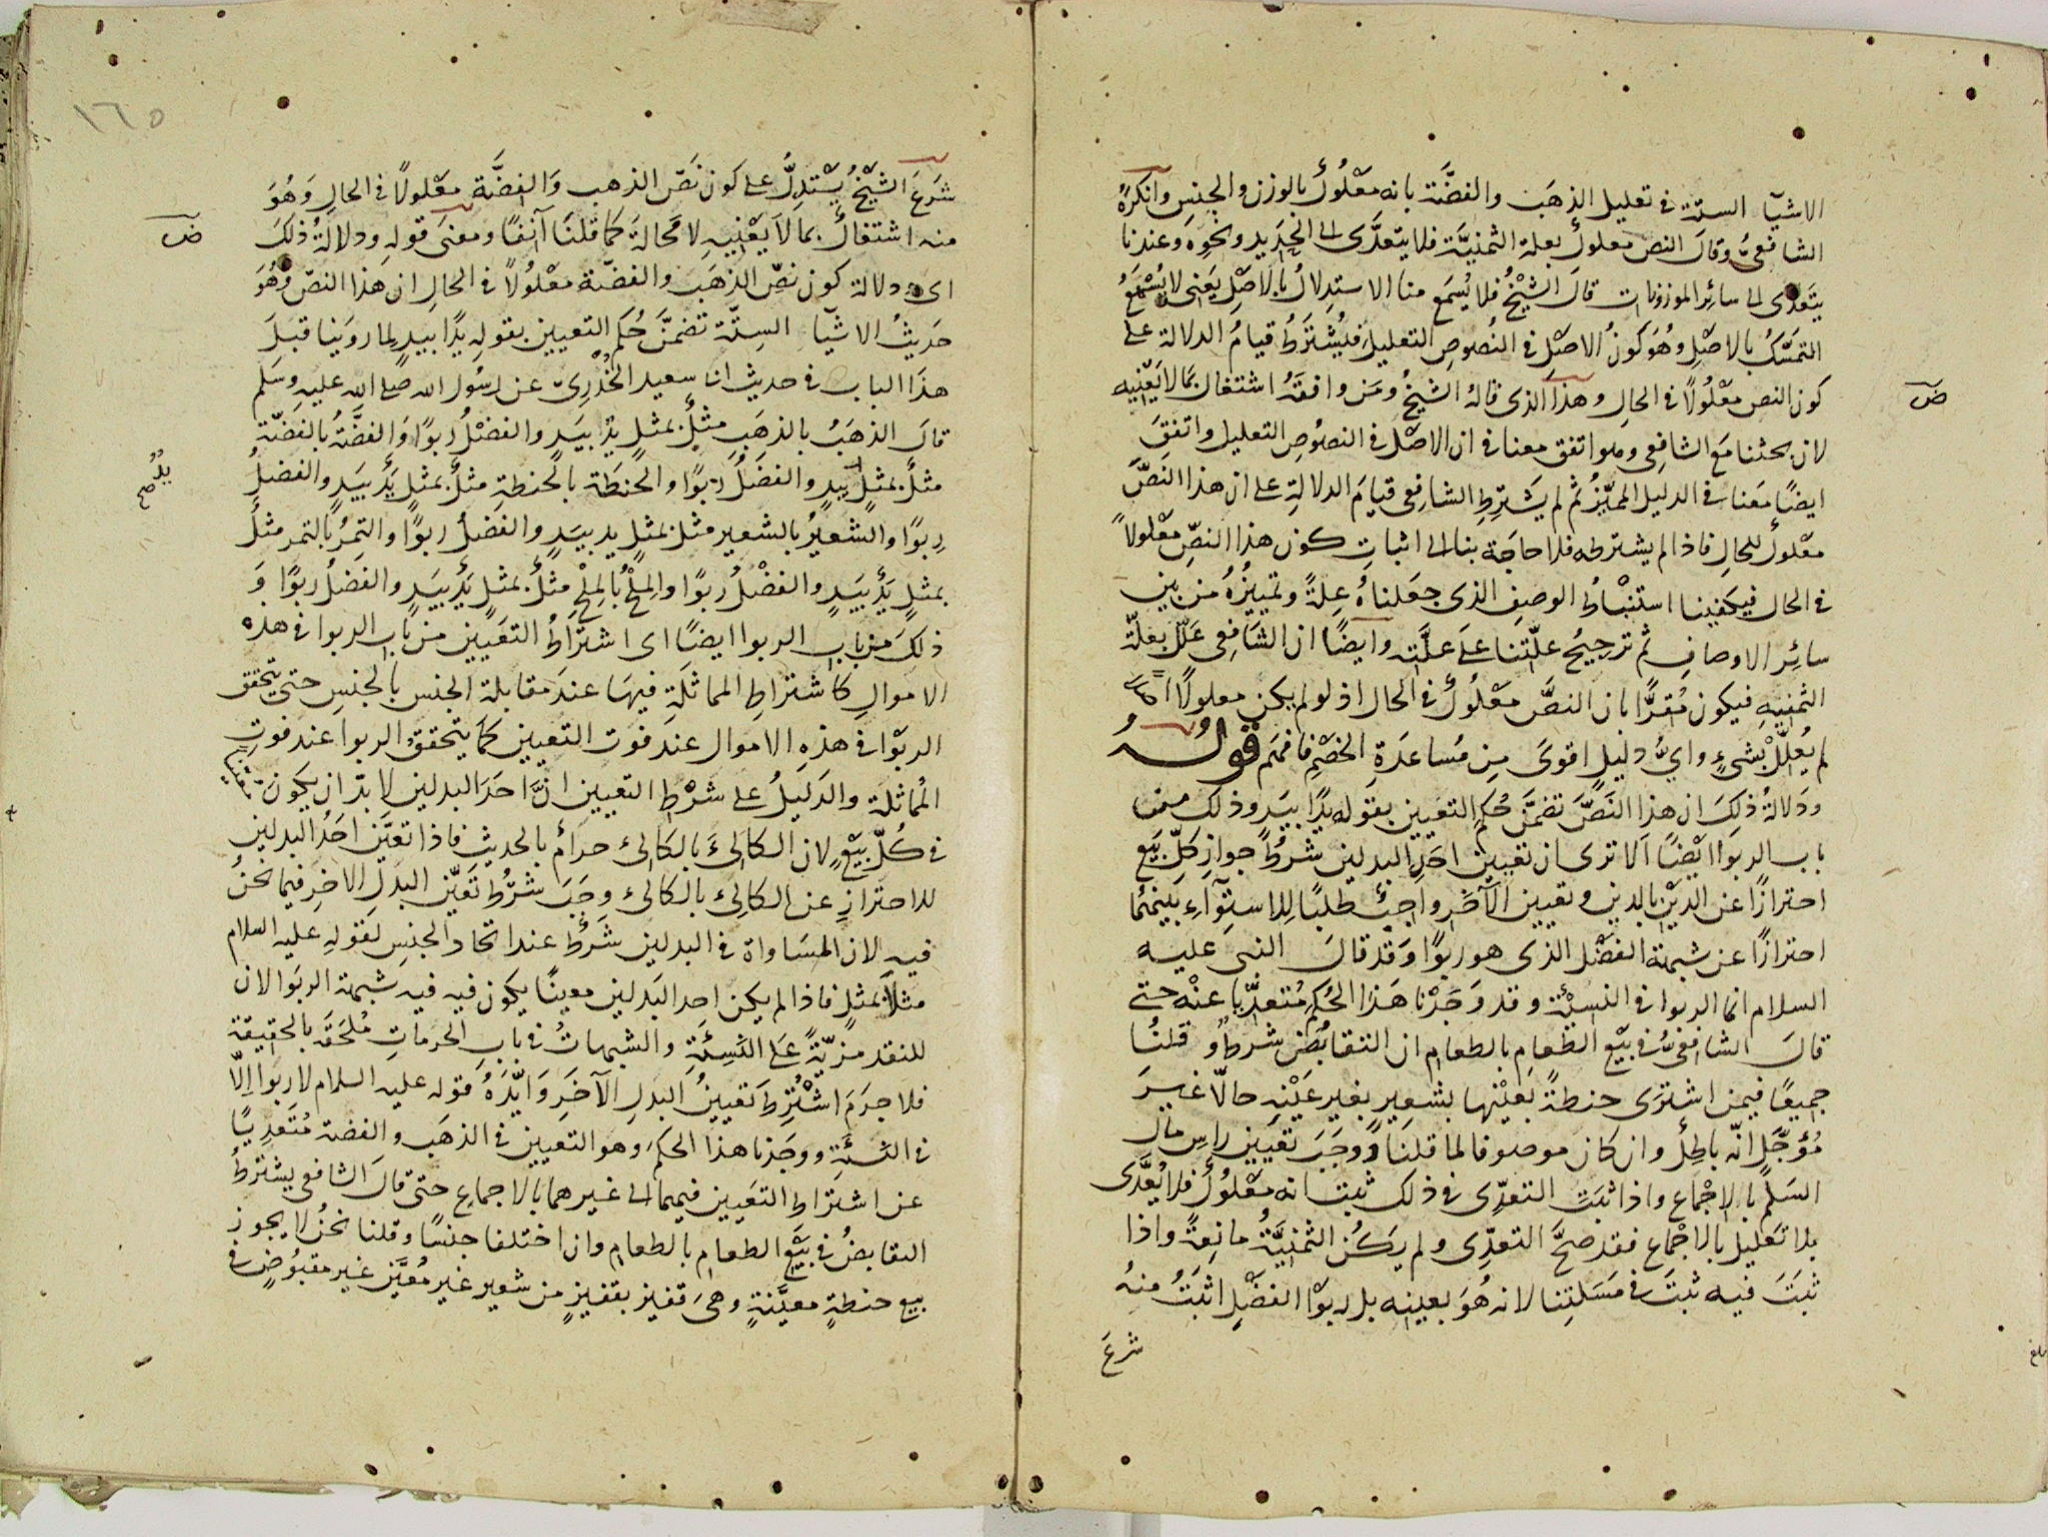 الاشيآء الستة في تعليل الذهَب والفضَّة بانه معْلُولٌ بالوزن والجنسِ وانكرهُ
الشافعيُّ وقالَ النص معلولٌ بعلة الثمنيَّة فلا يتعدَّى الى الحَدِيد ونحوِه وعندنا
يتَعَدّى الى سائِر الموزونات قالَ الشيْخُ فلا يُسمَع منا الاستدِلالُ بالاصْلِ يَعْنى لا يُسْمَعُ
التمسّكُ بالاصْلِ وهُوَ كَونُ الاصْلِ في النُصوصِ التعليل فيُشترَطُ قيامُ الدلالة على
كون النص معْلُولاً في الحالِ وهذا الذى قالهُ الشيخُ ومَن وافقَهُ اشتغال بمَا لا يَعْنِيه
ض
لان بحثنا مَعَ الشافِعى وهو اتفق معنا في ان الاصْل في النصُوصِ التعليل واتفقَ
ايضًا مَعَنا في الدليل المميّزُ ثم لم يشَترِطِ الشافِعى قيامَ الدلالةِ على ان هذا النصَّ
معْلولٌ للحالِ فاذا لم يشترطه فلا حاجَة بنا الى اثباتِ كون هذا النصِّ معْلولاً
في الحال فيكفينا استنْباطُ الوصفِ الذى جعَلناهُ عِلةً وتمييزُهُ من بين
سائِر الاوصافِ ثم ترجيحُ علّتنا عَلى علَّتِه وايضًا ان الشَافِعى علّل بعلّة
الثمنيةِ فيكون مُقرًّا بان النصَّ معْلُولٌ في الحال اذ لو لم يكن معلولًا
لم يُعلَّلْ بشىءٍ واىُّ دليلٍ اقوىَ مِن مُساعدَةِ الخصْمِ فافهَم قولُهُ
ودَلالةُ ذلكَ ان هذا النَصَّ تضمَّنَ حُكم التعيين بقوله يدًا بيَدٍ وذلك من
باب الربوَا ايْضًا اَلا ترى ان تعيينَ احَدِ البدلين شرْطُ جوازِ كلِّ بَيْع
احترازًا عن الدَّيْن بالدين وتعيين الآخَرِ واجبٌ طلَبًا لِلاستِوَآءِ بَينهُمَا
احترازًا عن شبهة الفضْل الذى هو ربوًا وَقد قالَ النبى عليه
السلام انما الربوا في النسِيْئة وقد وَجَدْنا هَذا الحُكم مُتعدِّيًا عنْه حتى
قالَ الشافعىُّ في بيْع الطعامِ بالطعام ان التقابُضَ شرطٌ وقلنُا
جميعًا فيمن اشترَى حنطةً بعيْنِها بشعيرٍ بغير عَيْنِه حالًّا غيرَ
مُؤجَّلٍ انّه باطِلٌ وان كان موصوفا لما قلنا ووجَبَ تعيين راسِ مال
السَلم بالاِجْماع واذا ثبَتَ التعدِّى في ذلك ثبتَ انه معْلُولٌ فلا يُعدَّى
بلا تعَليل بالاجْماع فقد صحَّ التعدِّى ولم يكُنِ الثمنيَّةُ مانِعةً واذا
ثبَتَ فيه ثبتَ في مَسَلتِنا لانه هُوَ بعينِه بل ربوْا الفضْلِ اثبَتُ منِهُ
شرعَ
١٦٥
شرَعَ الشيْخُ يسْتدِلُّ على كون نَصّ الذهب وَالفِضَّة معْلولاً في الحالِ وَهُوَ
منه اشتغالٌ بما لا يَعْنِيهِ لا مَحالةَ كمَا قلنَا آنفًا ومعنى قولِهِ ودلالةُ ذلكَ
ض
اى ودلالة كون نصِّ الذهَب والفضّة معْلُولاً في الحالِ ان هذا النصّ وهُوَ
حَديثُ الاشيَآء السِتَّة تضمَّنَ حُكم التعيين بقولِه يدًا بيدٍ لِما روَينا قبلَ
هذا الباب في حديث ابى سعيد الخُدْرِىّ عن رسُول الله صلى الله عليهِ وسَلم
قالَ الذهَبُ بالذهَبِ مِثلٌ بمثلٍ يدٌ بيَدٍ والفضْلُ ربوًا وَالفضَّةُ بالفضّة
مثلٌ بمثلٍ بيَدٍ والفضلُ ربوًا والحنطَة بالحنطةِ مثلٌ بمثلٍ يدٌ بيَدٍ والفضلُ
يدٌ صح
رِبوًا والشعيرُ بالشعير مثل بمثلٍ يد بيَدٍ والفضلُ ربوًا والتمرُ بالتمر مثلٌ
بمثلٍ يدٌ بيَدٍ والفضْلُ ربوًا والمِلحُ بالمِلحِ مثلٌ بمثلٍ يدٌ بيَدٍ والفَضلُ ربوًا وَ
ذلكَ من باب الربوا ايضًا اى اشترَاطُ التعَيين من باب الربوا في هذه
الاموالِ كاشتراطِ المماثلَةِ فيهَا عندَ مقابلة الجنس بالجنسِ حتى يتحقق
الربوا في هذهِ الاموال عند فوت التعيين كما يتحققُ الربوا عند فوتِ
المُماثلة والدَليلُ على شرْط التعيين انَّ احَدَ البدلين لا بدّ ان يكونَ
في كُلّ بَيْعٍ لان الكالِئَ بالكالِئ حرامٌ بالحديث فاذا تعيَّن احَدُ البدلين
للاحترازِ عن الكالِئ بالكالِئ وجَبَ شرْطُ تعَيّن البدَلِ الاخِر فيما نحنُ
فيه لان المسَاواة في البدلين شَرْطٌ عند اتحاد الجنسِ لقوله عليه السلام
مثلاً بمثلٍ فاذا لم يكن احد البَدلين معينًا يكون فيه فيه شبهة الربوَا لان
للنقد مزيّةً عَلى النّسِئَةِ والشبهاتُ في بابِ الحرماتِ مُلحَقة بالحقيقة
فلا جرَمَ اشْتُرِطَ تعيينُ البدلِ الآخَرِ وَايَّدَهُ قوله عليه السلام لا ربوا اِلاّ
في النّسئَةِ ووجَدنا هذا الحكمَ وهو التعيين في الذهَب والفضة مُتَعدِيًا
عن اشتراطِ التعَيين فيهما الى غيرهما بالاجماعِ حتى قالَ الشافعى يشترطُ
التقابضُ في بَيْع الطعام بالطعام وان اختلفا جنسًا وقلنا نحنُ لا يجوز
بيع حنطةٍ معيَّنةٍ وهىَ قفيز بقفيزٍ من شعير غير مُعيَّن غير مقبُوضٍ في